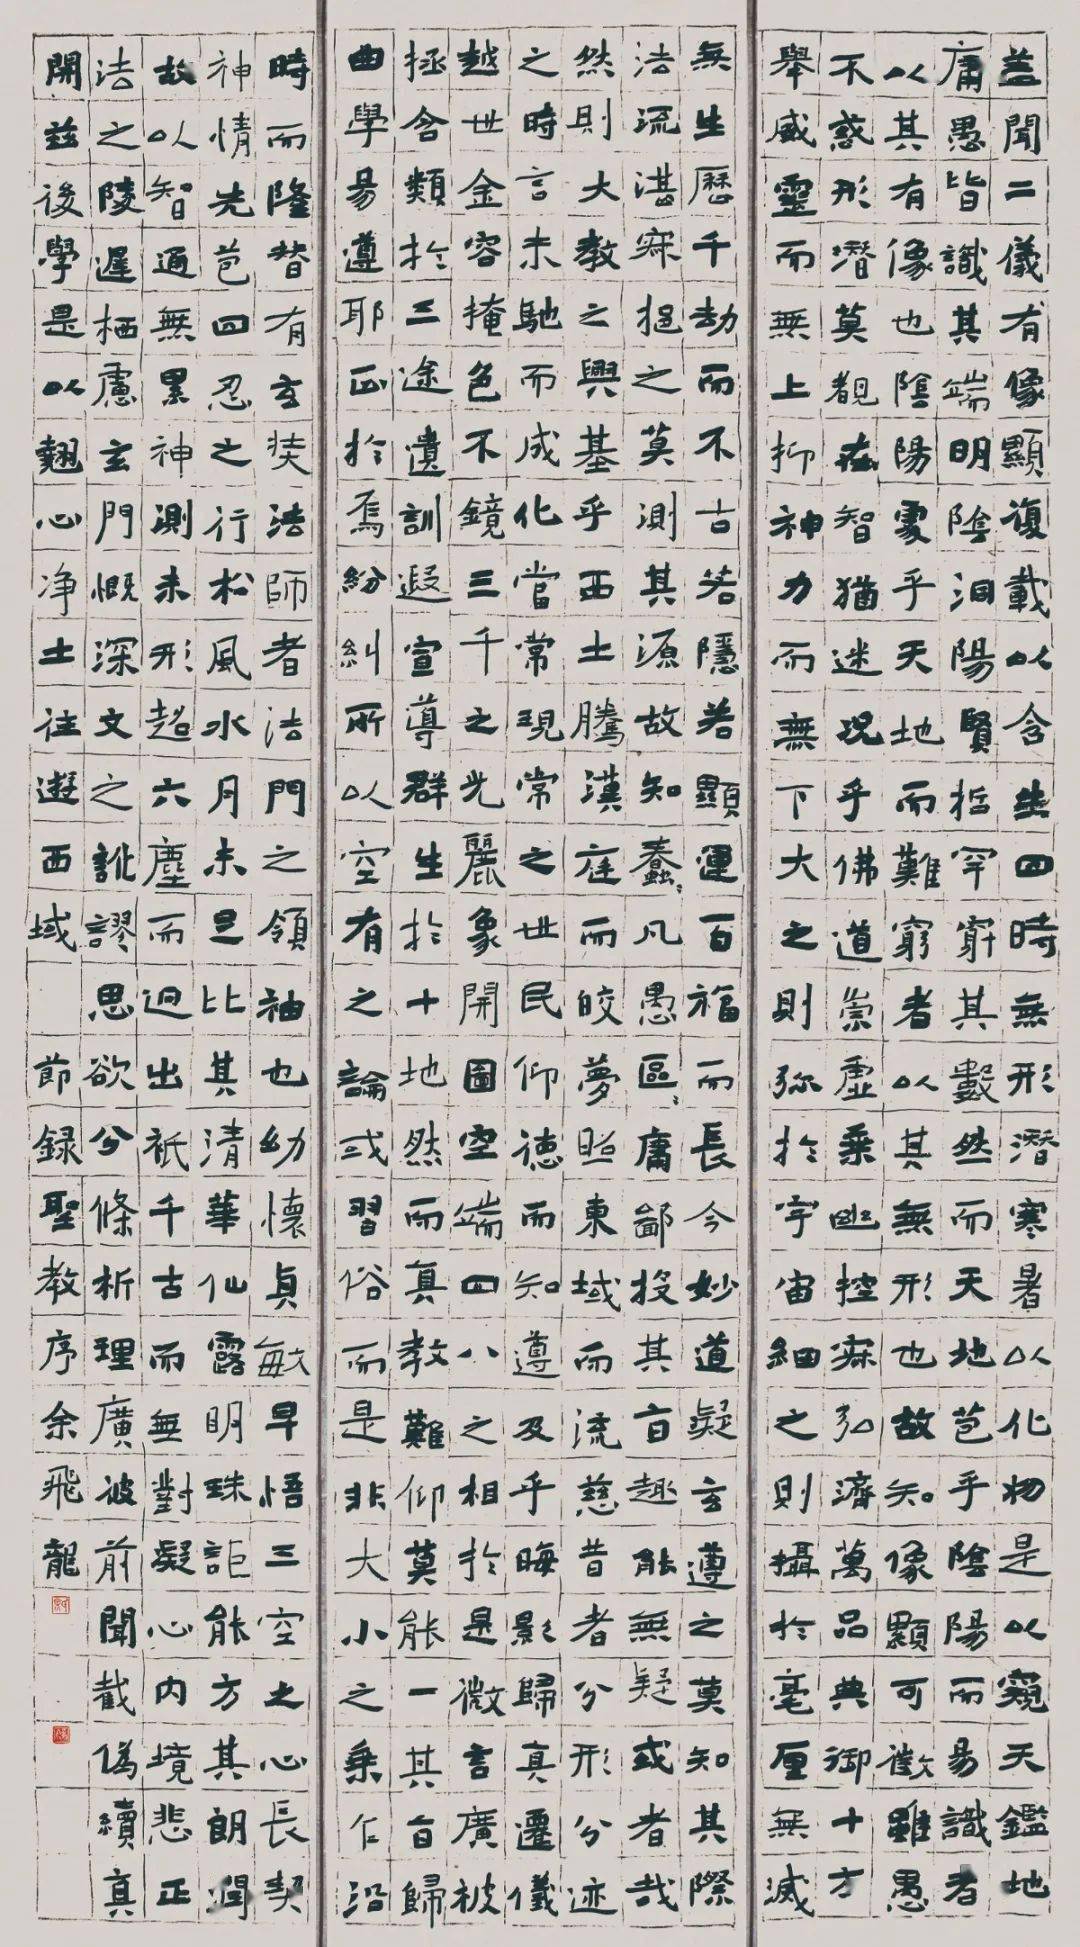 盖聞二儀有像顯復載以含生四時無形潛寒暑以化物是以窺天鑑地
庸愚皆識其端明陰洞陽賢哲罕窮其數然而天地苞乎陰陽而易識者
以其有像也陰陽處乎天地而難窮者以其無形也故知像顯可徵雖愚
不惑形潛莫覩在智猶迷況乎佛道崇虛乘幽控寂弘濟萬品典御十方
舉威靈而無上抑神力而無下大之則弥於宇宙細之則攝於毫厘無滅
無生歷千劫而不古若隱若顯運百福而長今妙道凝玄遵之莫知其際
法流湛寂挹之莫測其源故知蠢〻凡愚區〻庸鄙投其旨趣能無疑或者哉
然則大教之興基乎西土騰漢庭而皎夢照東域而流慈昔者分形分迹
之時言未馳而成化當常現常之世民仰德而知遵及乎晦影歸真遷儀
越世金容掩色不鏡三千之光麗象開圖空端四八之相於是微言廣被
拯含類於三途遺訓遐宣導群生於十地然而真教難仰莫能一其旨歸
曲學易遵耶正於焉紛糾所以空有之論或習俗而是非大小之乘乍沿
時而隆替有玄奘法師者法門之領袖也幼懷貞敏早悟三空之心長契
神情先苞四忍之行松風水月未足比其清華仙露明珠詎能方其朗潤
故以智通無累神測未形超六塵而迥出衹千古而無對凝心内境悲正
法之陵遲栖慮玄門慨深文之訛謬思欲分條析理廣彼前聞截偽續真
開茲後學是以翹心净土往遊西域 節録聖教序余飛龍